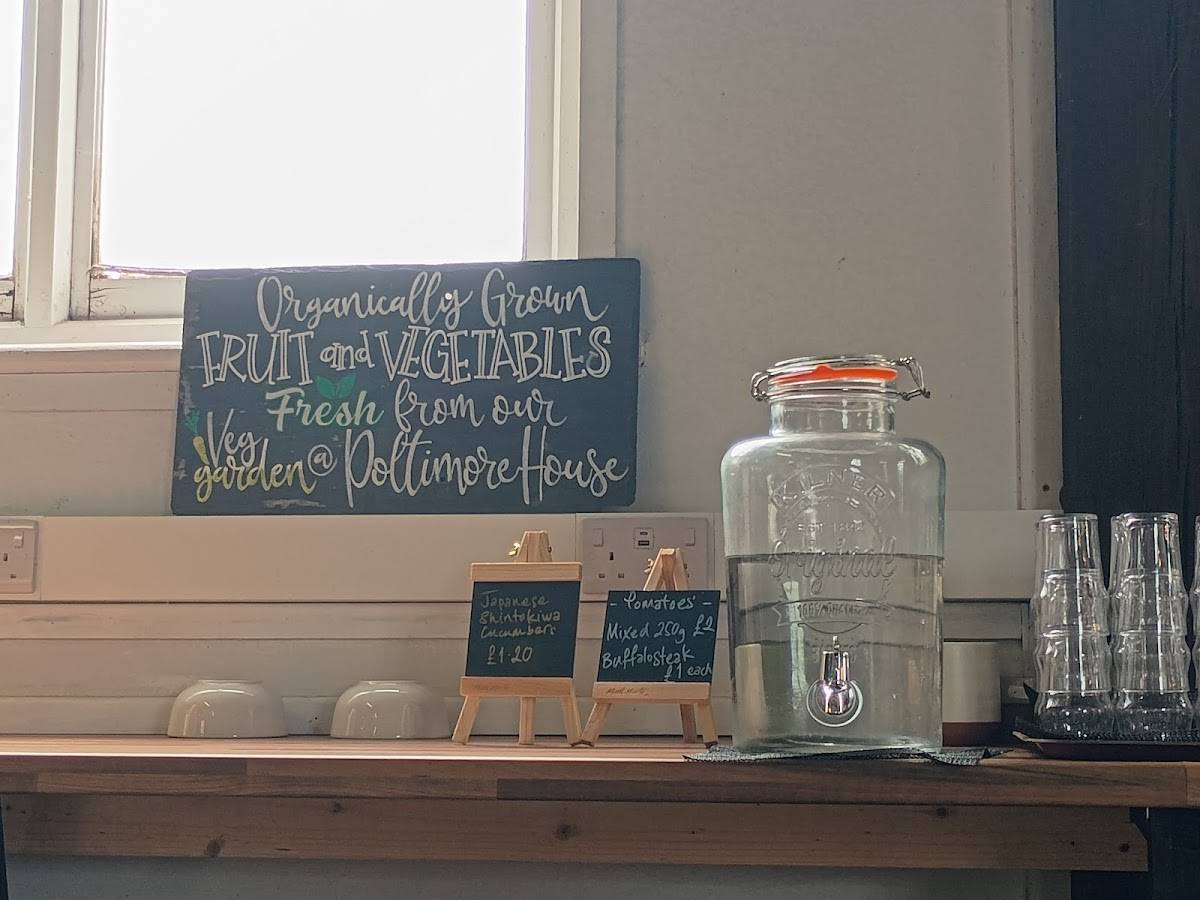 Organically Grown
FRUIT and VEGETABLES
Fresh from our
Veg garden @ Poltimore House
Japanese
Shintokiwa
Cucumbers
£1.20
- Tomatoes -
Mixed 250g £2
Buffalosteak
£1 each
KILNER
Original